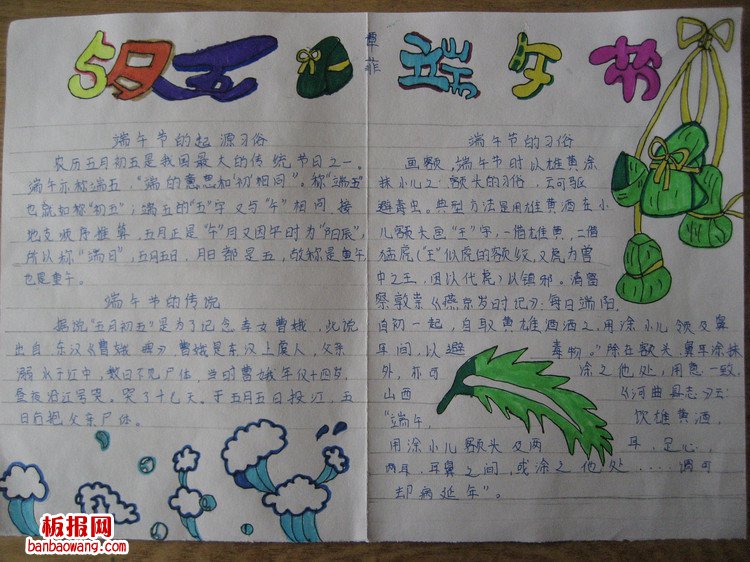 5月五
覃菲
端午节
端午节的起源习俗
农历五月初五是我国最大的传统节日之一。
端午亦称端五,“端的意思和‘初’相同”。称“端五”
也就如称“初五”;端五的“五”字又与“午”相同 接
地支顺序推算,五月正是“午”月又因午时为“阳辰”,
所以称“端日”,五月五日,月日都是五,故称是重午
也是重午。
端午节的传说
据说“五月初五”是为了记念孝女曹娥,此说
出自 东汉《曹娥 碑》,曹娥是东汉上虞人,父亲
溺水于江中,数日不见尸体,当时曹娥年仅十四岁,
昼夜沿江号哭,哭了十七天。于五月五日投江,五
日后抱父亲尸体。
端午节的习俗
画额,端午节时以雄黄涂
抹小儿之额头的习俗,云可驱
避毒虫。典型方法是用雄黄酒在小
儿额头画“王”字,一借雄黄,二借
猛虎(“王”似虎的额纹,又虎为兽
中之王,因以代虎)以镇邪。清富
察敦崇《燕京岁时记》:每日端阳,
自初一起,自取黄雄酒洒之,用涂小儿领及鼻
耳间,以避 毒物。”除在额头、鼻耳涂抹
外,亦可 涂之他处,用意一致.
山西 《河曲县志》云:
“端午, 饮雄黄酒,
用涂小儿额头及两 耳,足心,
两耳,耳鼻之间,或涂之他处....谓可
却病延年”。
板报网
banbaowang.com